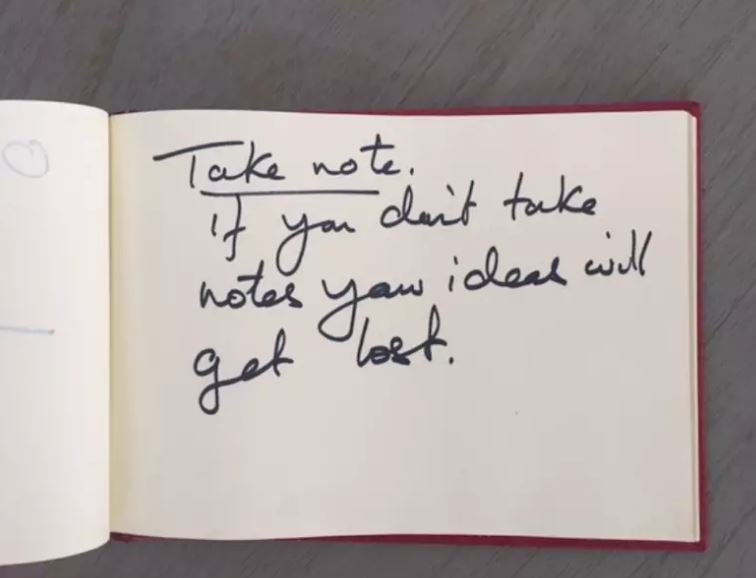 Take note.
if you don't take
notes your ideas will
get lost.